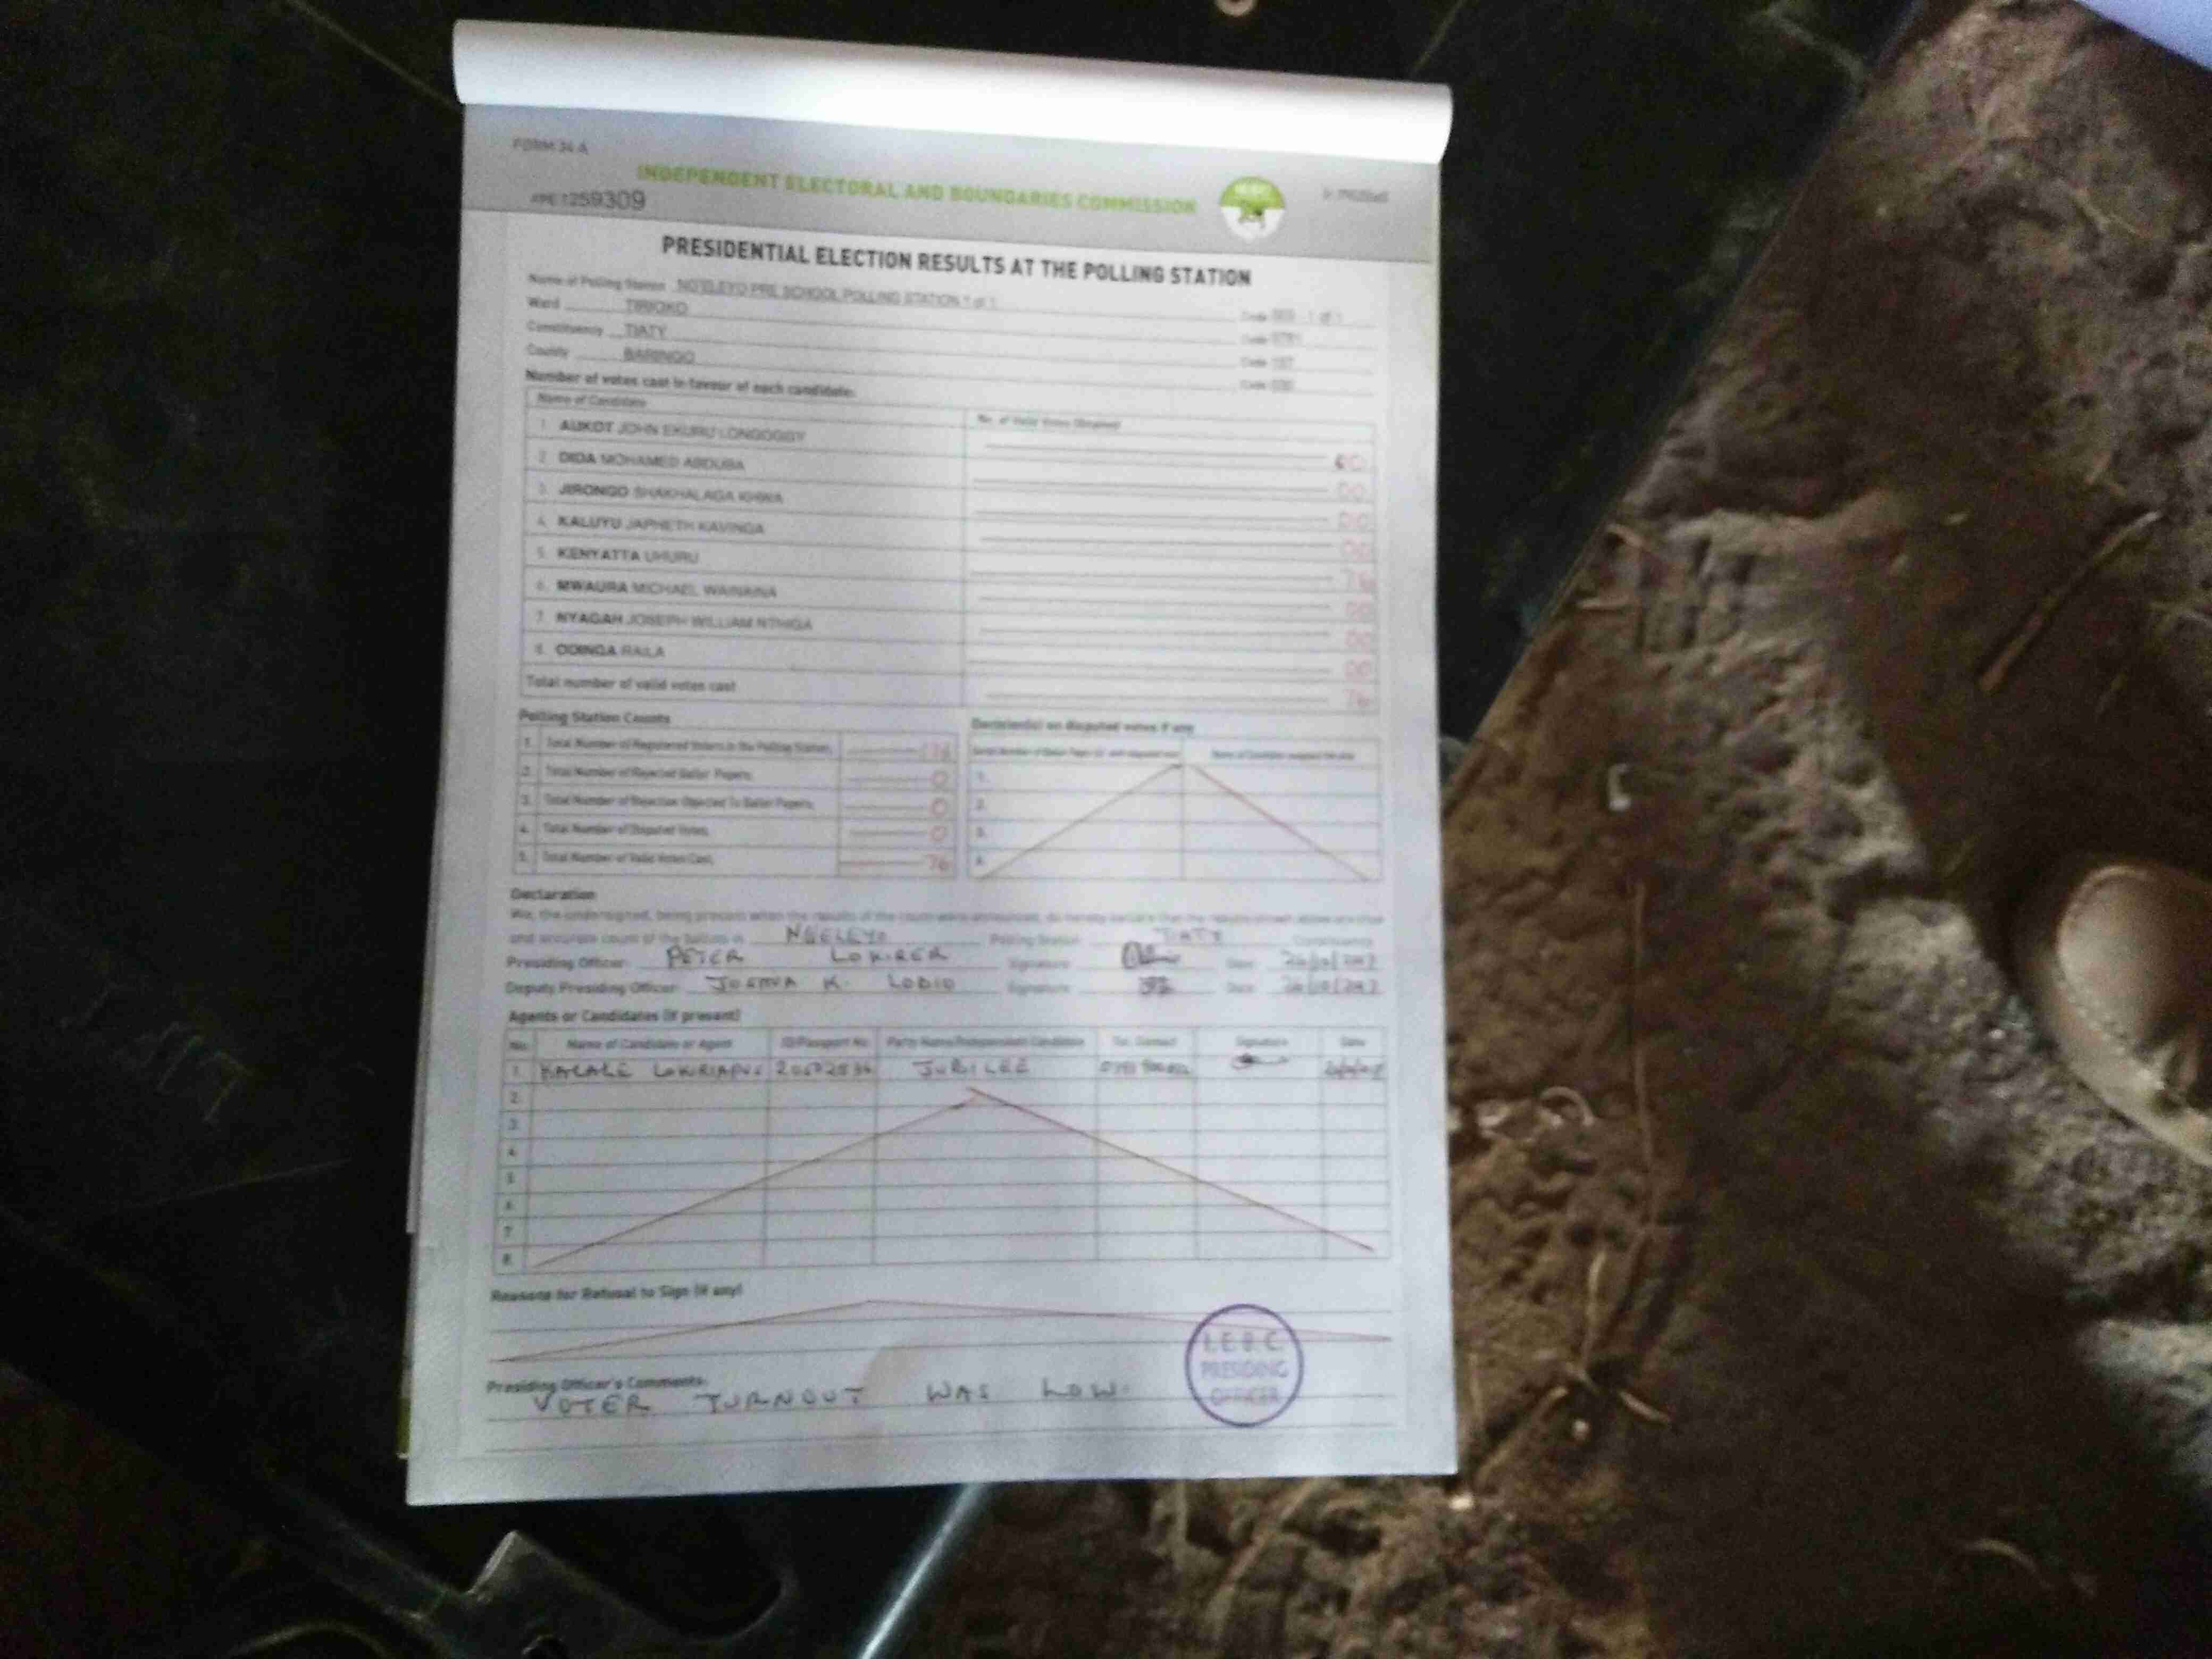 FORM 34 A
INDEPENDENT ELECTORAL AND BOUNDARIES COMMISSION
1259309
PRESIDENTIAL ELECTION RESULTS AT THE POLLING STATION
Name of Polling Station NG'ELEYO PRE SCHOOL POLLING STATION 1 of 1 Code 1 of 1
Ward TIRIOKO Code
Constituency TIATY Code
County BARINGO Code
Number of votes cast in favour of each candidate:
Name of Candidate No. of Valid Votes Obtained
1. AUKOT JOHN EKURU LONGOGGY
2. DIDA MOHAMED ABDUBA 00
3. JIRONGO SHAKHALAGA KHWA 00
4. KALUYU JAPHETH KAVINGA 00
5. KENYATTA UHURU 76
6. MWAURA MICHAEL WAINAINA 00
7. NYAGAH JOSEPH WILLIAM NTHIGA 00
8. ODINGA RAILA 00
Total number of valid votes cast 76
Polling Station Counts
1. Total Number of Registered Voters in the Polling Station
2. Total Number of Rejected Ballot Papers 0
3. Total Number of Rejection Objected To Ballot Papers 0
4. Total Number of Disputed Votes 0
5. Total Number of Valid Votes Cast 76
Decision(s) on disputed votes if any
1.
2.
3.
4.
Declaration
We, the undersigned, being present when the results of the count were announced, do hereby declare that the results shown above are true
and accurate count of the ballots in NGELEYO Polling Station TIATY Constituency
Presiding Officer: PETER LOKIRER Signature Date 26/10/2017
Deputy Presiding Officer: JOSHUA K. LODIO Signature Date 26/10/2017
Agents or Candidates (if present)
No. Name of Candidate or Agent ID/Passport No. Party Name/Independent Candidate Tel. Contact Signature Date
1. JUBILEE
2.
3.
4.
5.
6.
7.
8.
Reasons for Refusal to Sign (if any)
Presiding Officer's Comments:
VOTER TURNOUT WAS LOW.
I.E.B.C.
PRESIDING
OFFICER